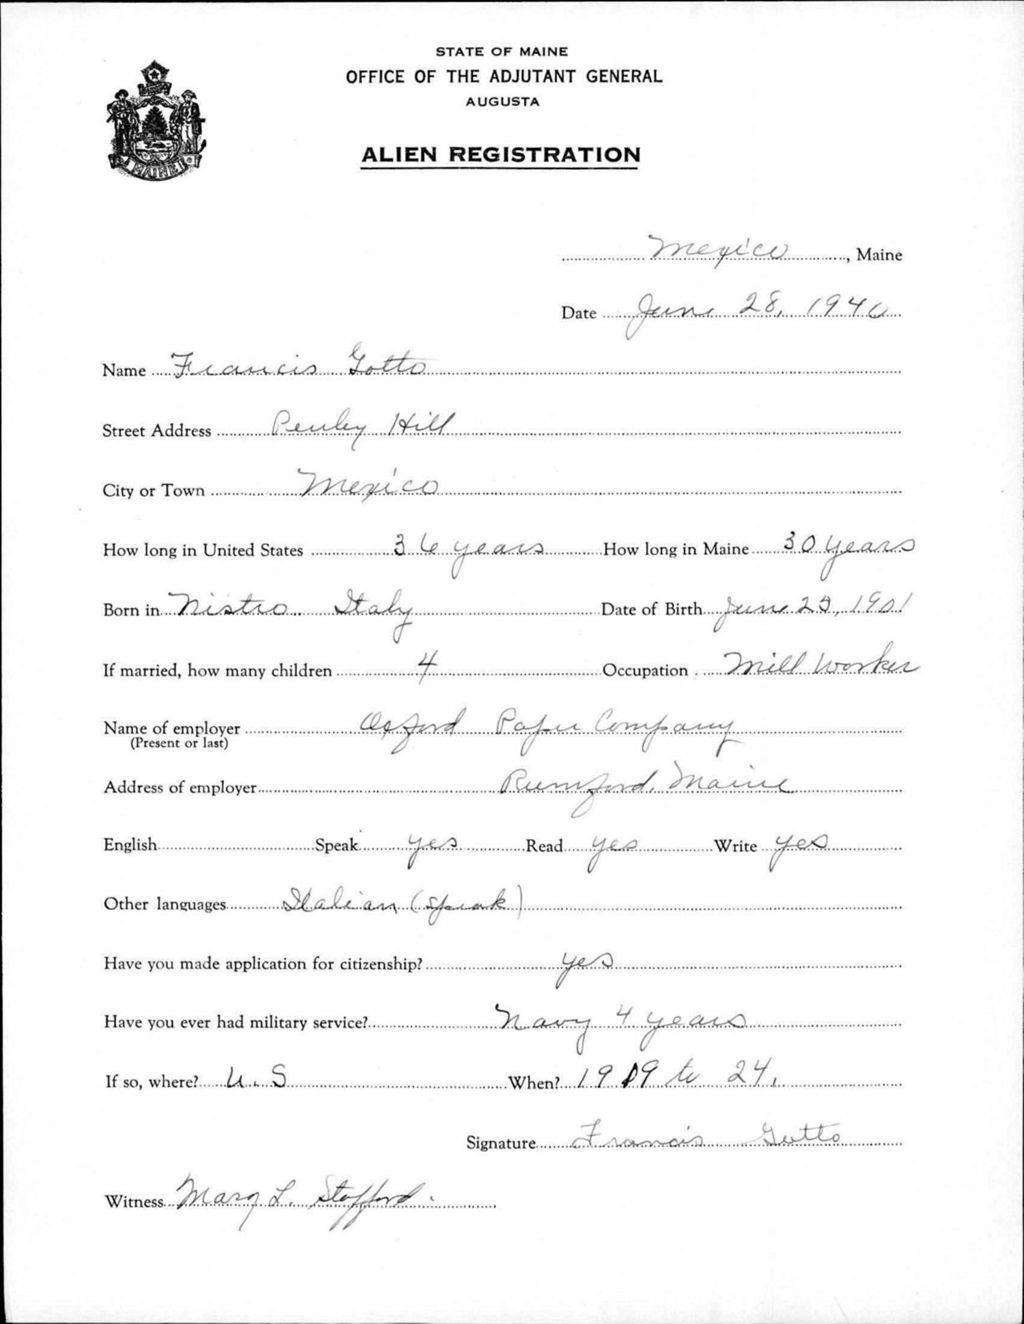 STATE OF MAINE
OFFICE OF THE ADJUTANT GENERAL
AUGUSTA
MAINE
ALIEN REGISTRATION
Mexico, Maine
Date June 28, 1940
Name Francis Gotto
Street Address Penley Hill
City or Town Mexico
How long in United States 36 years How long in Maine 30 years
Born in Nistro. Italy Date of Birth June 25, 1901
If married, how many children 4 Occupation Mill Worker
Name of employer Oxford Paper Company
(Present or last)
Address of employer Rumford, Maine
English Speak yes Read yes Write yes
Other languages Italian (speak)
Have you made application for citizenship? yes
Have you ever had military service? Navy 4 years
If so, where? U.S When? 1919 to 24.
Signature Francis Gotto
Witness Mary L. Stafford.